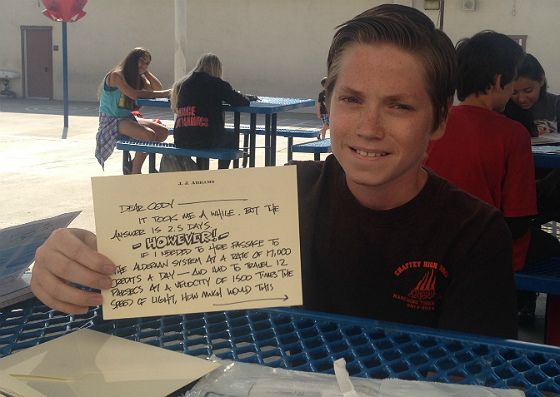 J. J. ABRAMS
DEAR CODY —
IT TOOK ME A WHILE, BUT THE
ANSWER IS 2.5 DAYS.
- HOWEVER! -
IF I NEEDED TO HIRE PASSAGE TO
THE ALDERAAN SYSTEM AT A RATE OF 17,000
CREDITS A DAY — AND HAD TO TRAVEL 12
PARSECS AT A VELOCITY OF 1500 TIMES THE
SPEED OF LIGHT, HOW MUCH WOULD THIS
CHAFFEY HIGH